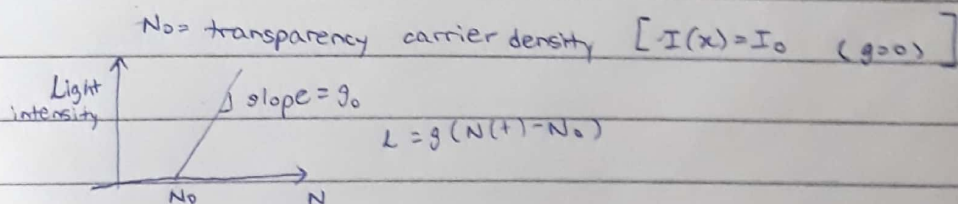 N₀= transparency carrier density [I(x)=I₀ (g=0)]
Light
intensity
slope = g₀
L = g(N(t)-N₀)
N₀ N